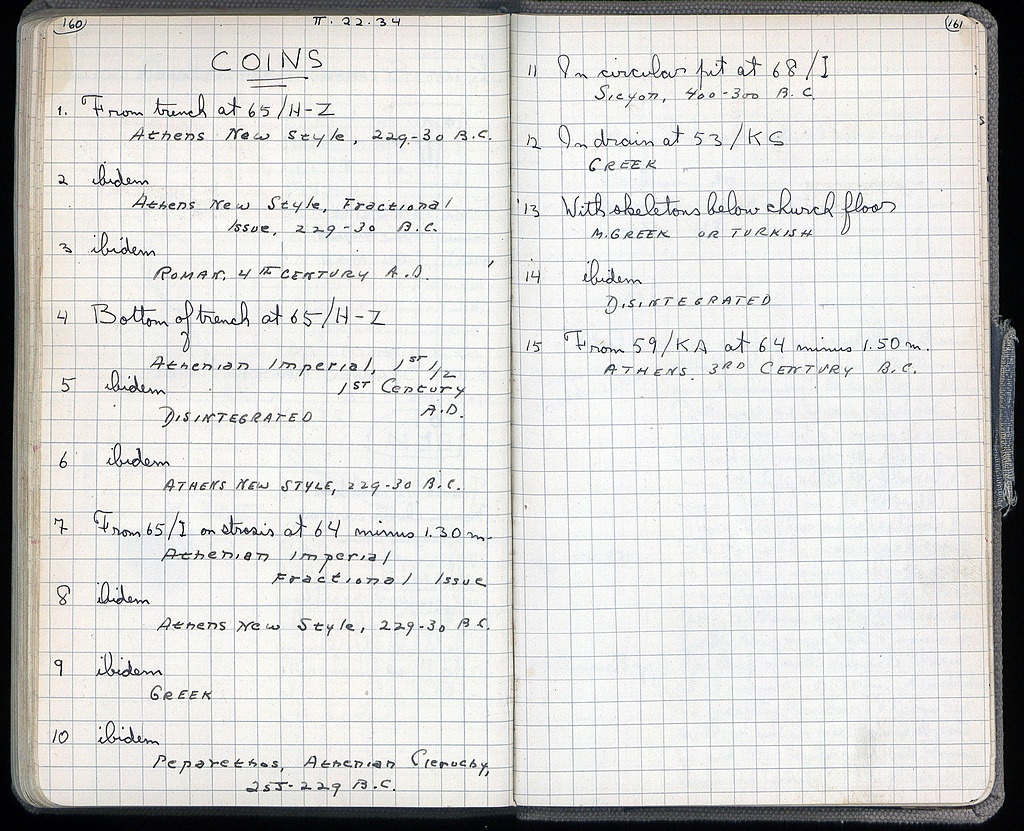 160
II. 22. 34
COINS
1. From trench at 65/H-Z
Athens New Style, 229-30 B.C.
2 ibidem
Athens New Style, Fractional
Issue, 229-30 B.C.
3 ibidem
ROMAN, 4TH CENTURY A.D.
4 Bottom of trench at 65/H-Z
Athenian Imperial, 1ST 1/2
5 ibidem
1ST Century
A.D.
DISINTEGRATED
6 ibidem
ATHENS NEW STYLE, 229-30 B.C.
7 From 65/I on strosis at 64 minus 1.30 m.
Athenian Imperial
Fractional Issue
8 ibidem
Athens New Style, 229-30 B.C.
9 ibidem
GREEK
10 ibidem
Peparethos, Athenian Cleruchy,
255-229 B.C.
161
11 In circular pit at 68/I
Sicyon, 400-300 B.C.
12 In drain at 53/KS
GREEK
13 With skeletons below church floor
M. GREEK OR TURKISH
14 ibidem
DISINTEGRATED
15 From 59/KA at 64 minus 1.50 m.
ATHENS, 3RD CENTURY B.C.